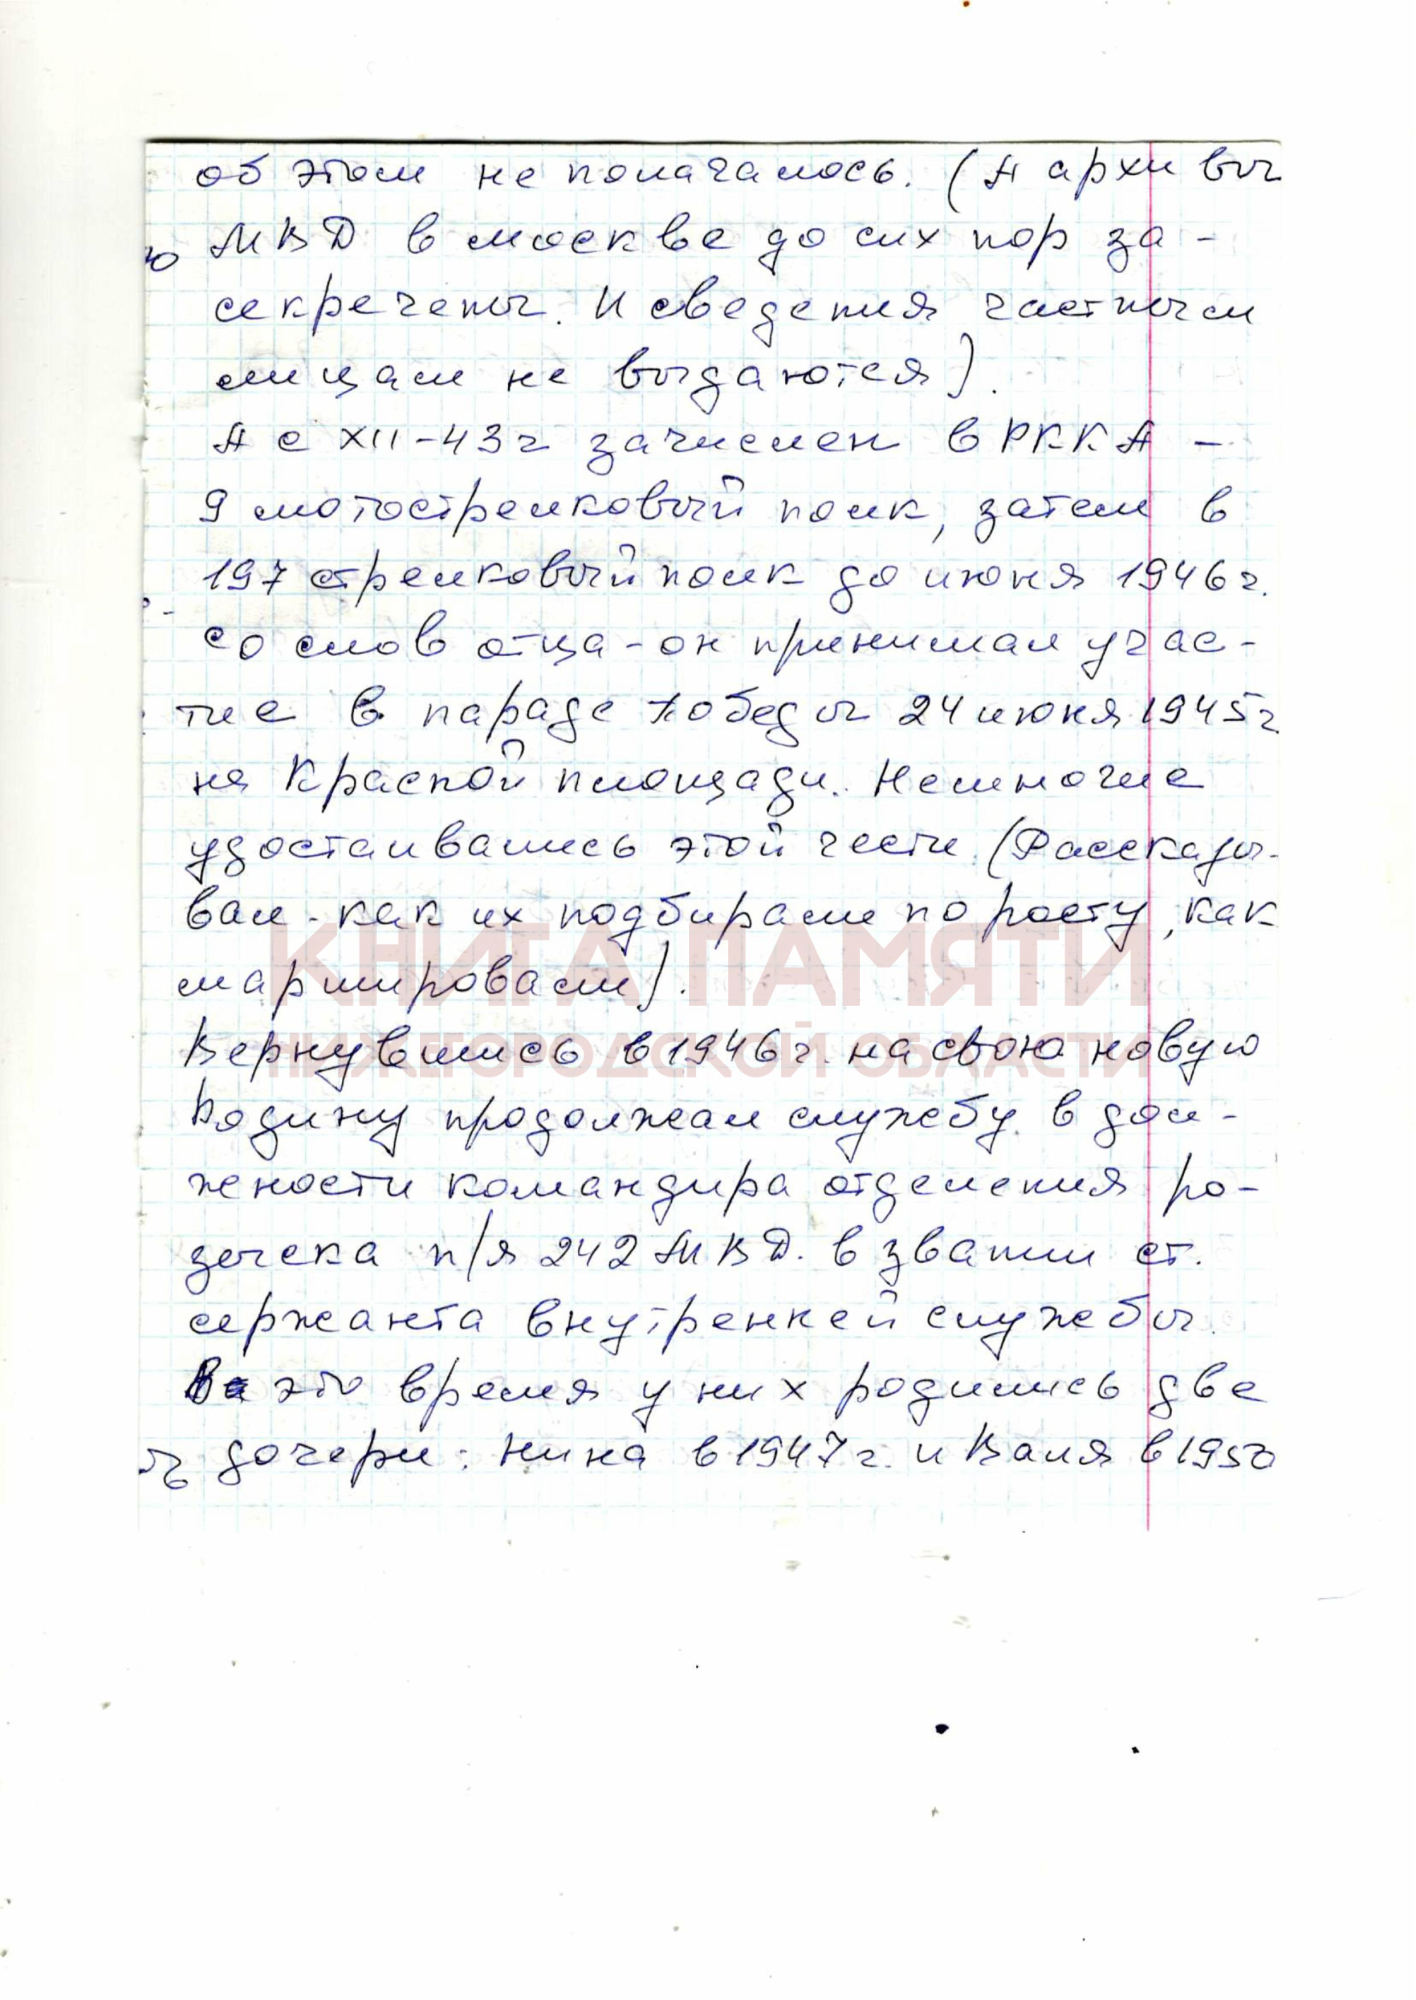 об этом не полагалось. (А архивы
ю МВД в москве до сих пор за-
секречены. И сведения частным
лицам не выдаются).
А с XII-43г зачислен в РККА -
9 мотострелковый полк, затем в
197 стрелковый полк до июня 1946г.
со слов отца - он принимал учас-
тие в параде Победы 24 июня 1945г
на Красной площади. Немногие
удостаивались этой чести. (Рассказы-
вал - как их подбирали по росту, как
маршировали).
КНИГА ПАМЯТИ
Вернувшись в 1946г. на свою новую
НИЖЕГОРОДСКОЙ ОБЛАСТИ
Родину продолжал службу в дол-
жности командира отделения ро-
зыска п/я 242 МВД. в звании ст.
сержанта внутренней службы.
В это время у них родились две
дочери: Нина в 1947г. и Валя в 1950